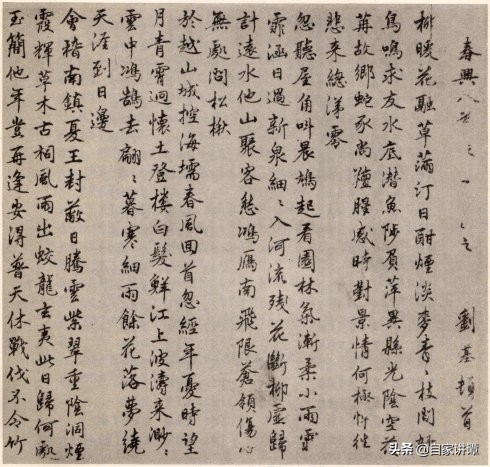 春興八首之一
劉基頓首
柳暖花融草滿汀日酣煙淡麥青〻枝間好
鳥鳴求友水底潛魚陟負萍異縣光陰空荏
苒故鄉蛇豕尚羶腥感時對景情何極忖往
悲来總涕零
忽聽屋角叫晨鳩起看園林氣漸柔小雨雲
霏涵日過新泉細〻入河流殘花斷柳虛歸
計遠水他山聚客愁鳴雁南飛限蒼領傷心
無處問松楸
於越山城控海壖春風回首忽經年憂時望
月青霄迥懷土登樓白髮鮮江上波濤来渺〻
雲中鴻鵠去翩〻暮寒細雨餘花落夢繞
天涯到日邊
會稽南鎮夏王封蔽日騰雲紫翠重陰洞煙
霞輝草木古祠風雨出蛟龍玄夷此日歸何處
玉簡他年豈再逢安得普天休戰伐不令竹
头条 @自家讲谭